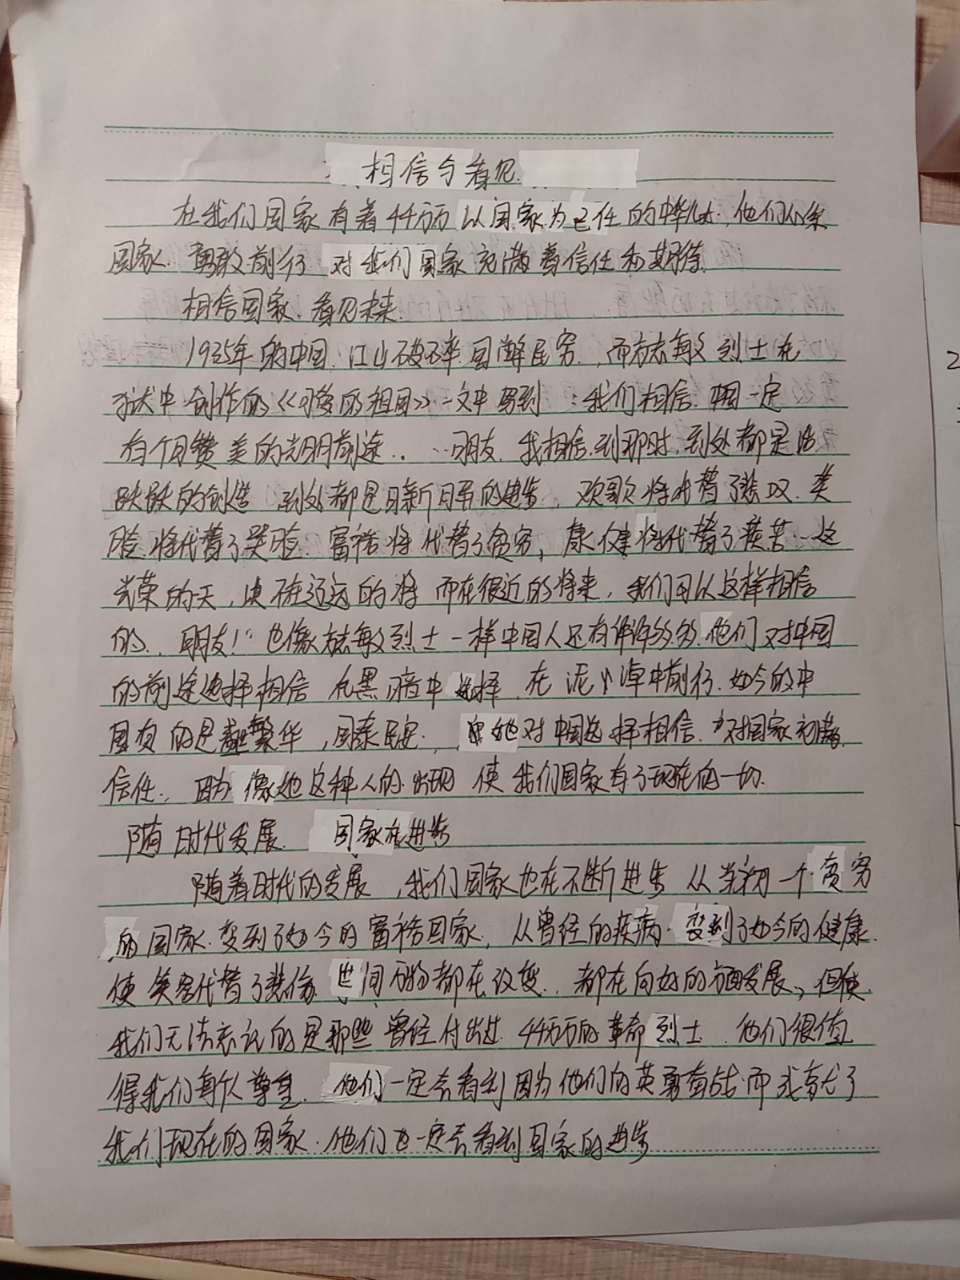 相信与看见.
在我们国家有着44万万以国家为己任的中华儿女,他们心系
国家.勇敢前行 对我们国家充满着信任和期待.
相信国家、看见未来.
1935年的中国.江山破碎国弊民穷,而方志敏烈士在
狱中创作的《可爱的祖国》一文中写到:我们相信.中国一定
有个可赞美的光明前途..…朋友.我相信.到那时.到处都是活
跃跃的创造 到处都是日新月异的进步,欢歌将代替了悲叹.笑
脸将代替了哭脸.富裕将代替了贫穷,康健将代替了疾苦…这
光荣的天,决不在辽远的将 而在很近的将来,我们可以这样相信
的.朋友!”也像方志敏烈士一样中国人还有许许多多.他们对中国
的前途选择相信 在黑暗中选择.在泥淖中前行.如今的中
国有的是繁华,国泰民安. 她对中国选择相信.对国家充满
信任.因为像她这种人的出现 使我们国家有了现在的一切.
随时代发展 国家在进步
随着时代的发展,我们国家也在不断进步 从当初一个贫穷
的国家.变到了如今的富裕国家,从曾经的疾病.变到了如今的健康.
使笑容代替了悲伤 世间万物都在改变.都在向好的方面发展,但使
我们无法忘记的是那些曾经付出过44万万的革命烈士.他们很值
得我们每个人尊重.他们一定会看到因为他们的英勇奋战而成就了
我们现在的国家.他们也一定会看到国家的进步